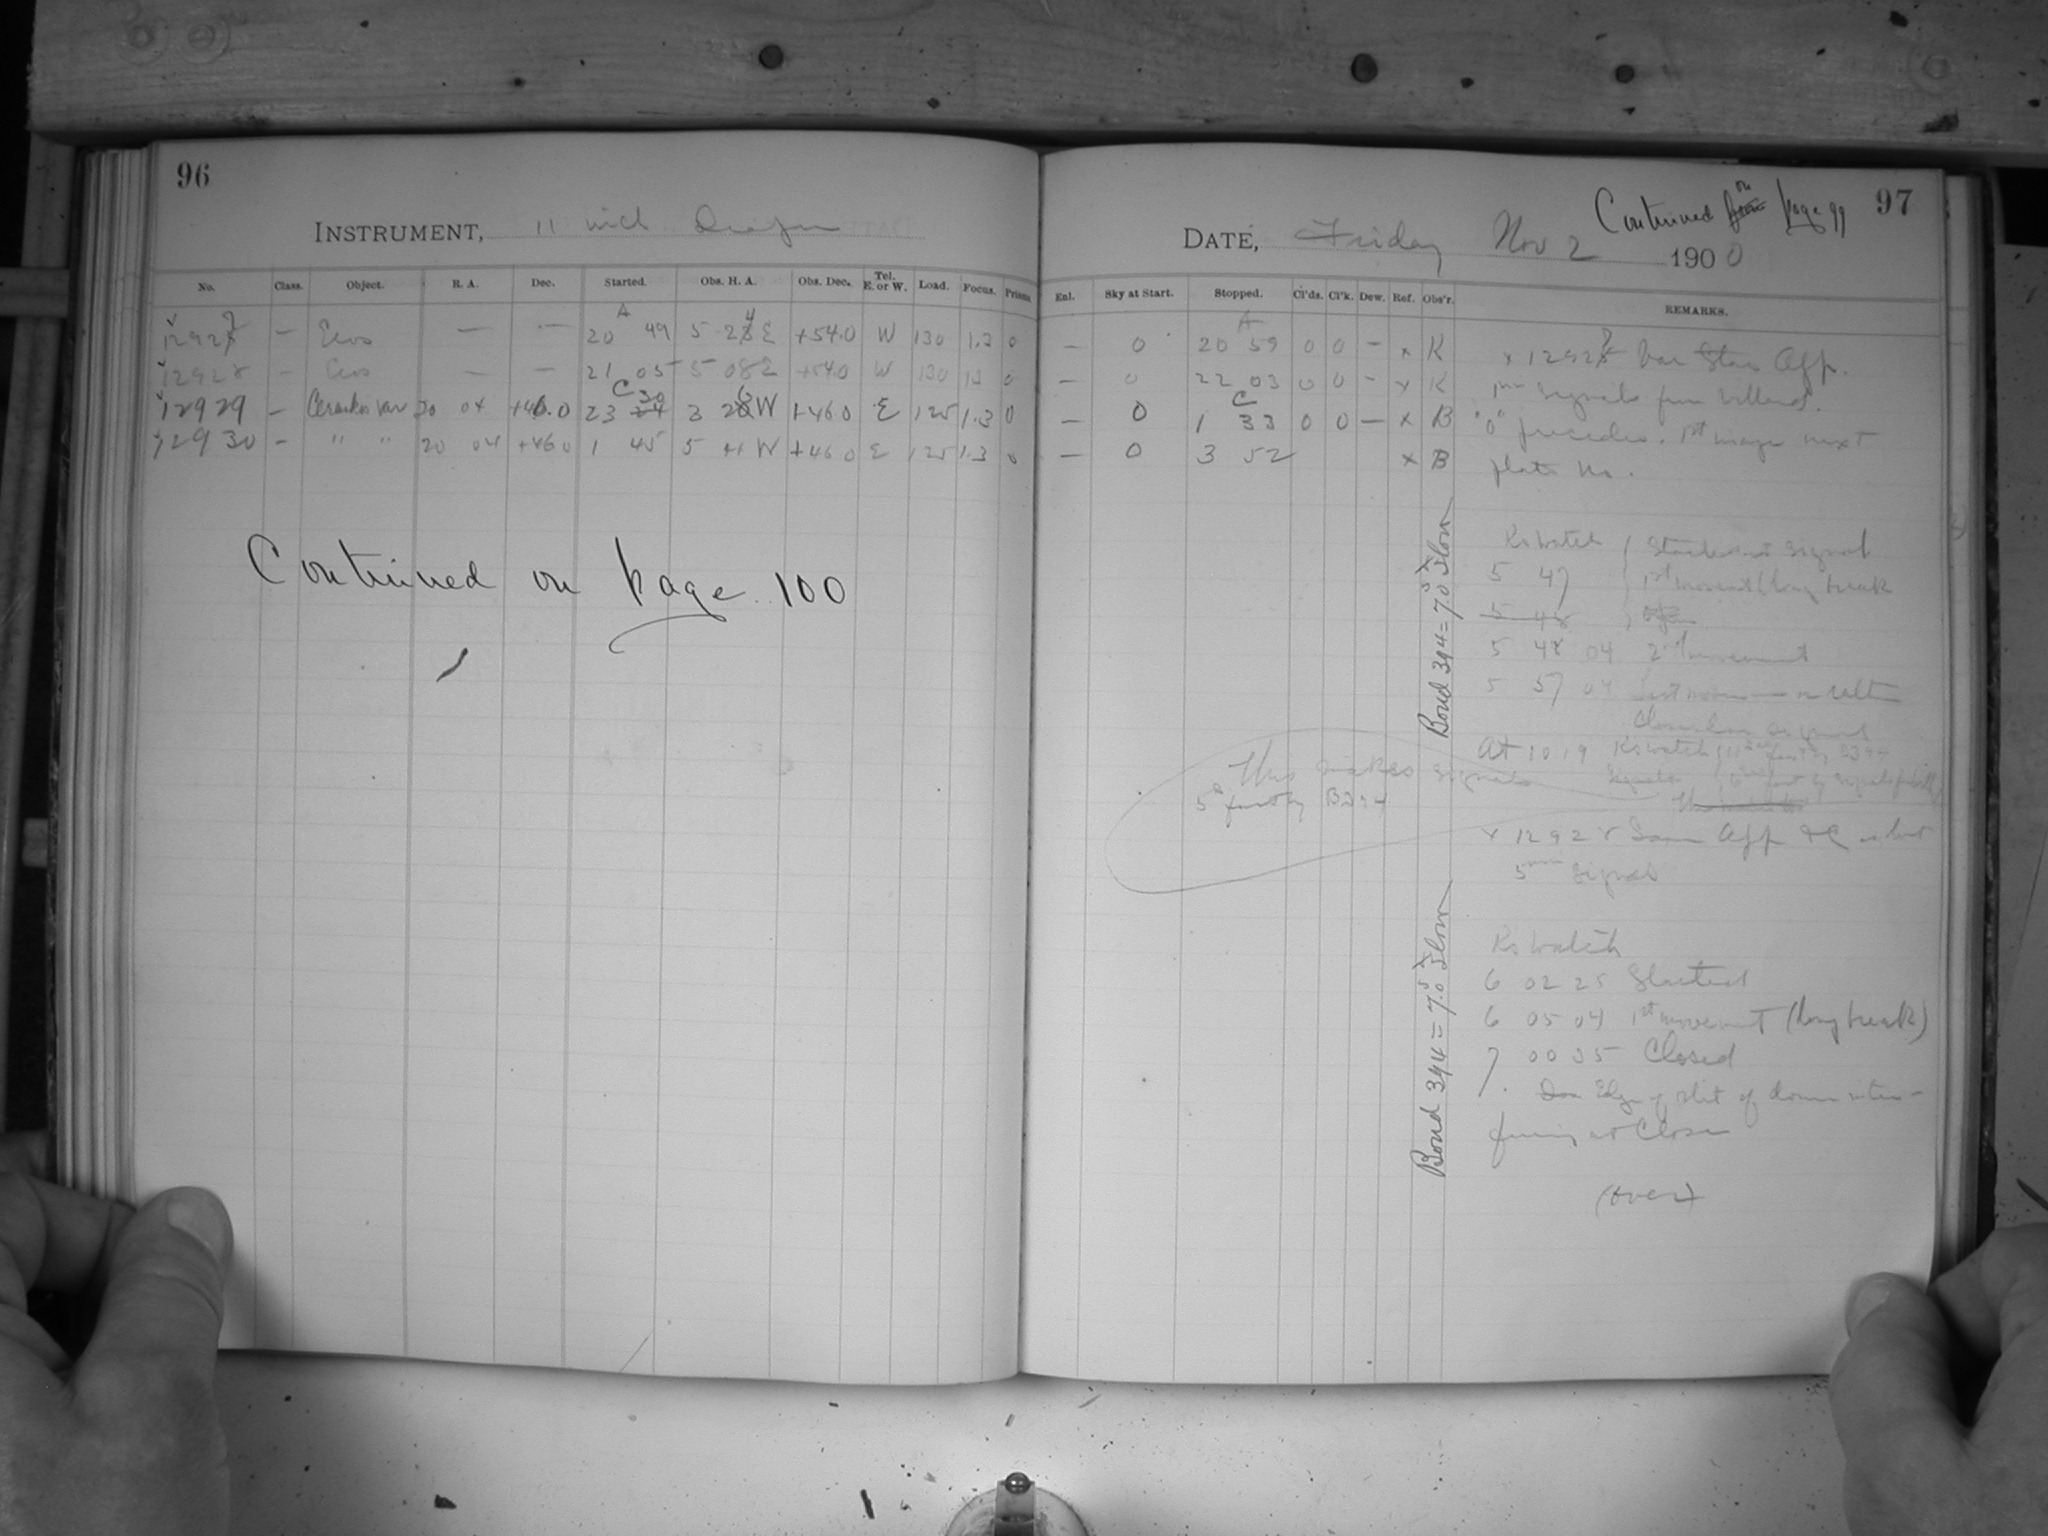 96
INSTRUMENT, 11 inch Draper
No. Class. Object. R. A. Dec. Started. Obs. H. A. Obs. Dec. Tel. E. or W. Load. Focus. Prisms
12927 — Eros — — A 20 49 5 24 E +54.0 W 130 1.3 0
12928 — Eros — — 21 05 5 08 E +54.0 W 130 1.3 0
12929 — Ceraskis Var 20 04 +46.0 C 23 30 3 26 W +46.0 E 125 1.3 0
12930 — " " 20 04 +46.0 1 45 5 41 W +46.0 E 125 1.3 0
Continued on page 100
97
Continued on page 99
DATE, Friday Nov 2 1900
Enl. Sky at Start. Stopped. Cl'ds. Cl'k. Dew. Ref. Obs'r. REMARKS.
— 0 A 20 59 0 0 — x K
— 0 22 03 0 0 — x K
— 0 C 1 33 0 0 — x B
— 0 3 52 x B
x 12927 Var Star App.
1 min signals from
"0" precedes. 1st image next
plate No.
Ks watch
5 47 1st movement (long break
5 48
5 48 04 2nd movement
5 57 04
At 10 19 Ks watch
This makes signals
5s fast by B394
x 12928 Same App &C as last
5 min signal
Bond 394 = 7.0s Slow
Ks watch
6 02 25 Started
6 05 04 1st movement (long break)
7 00 35 Closed
7. Edge of slit of dome inter-
fering at Close
Bond 394 = 7.0s Slow
(over)